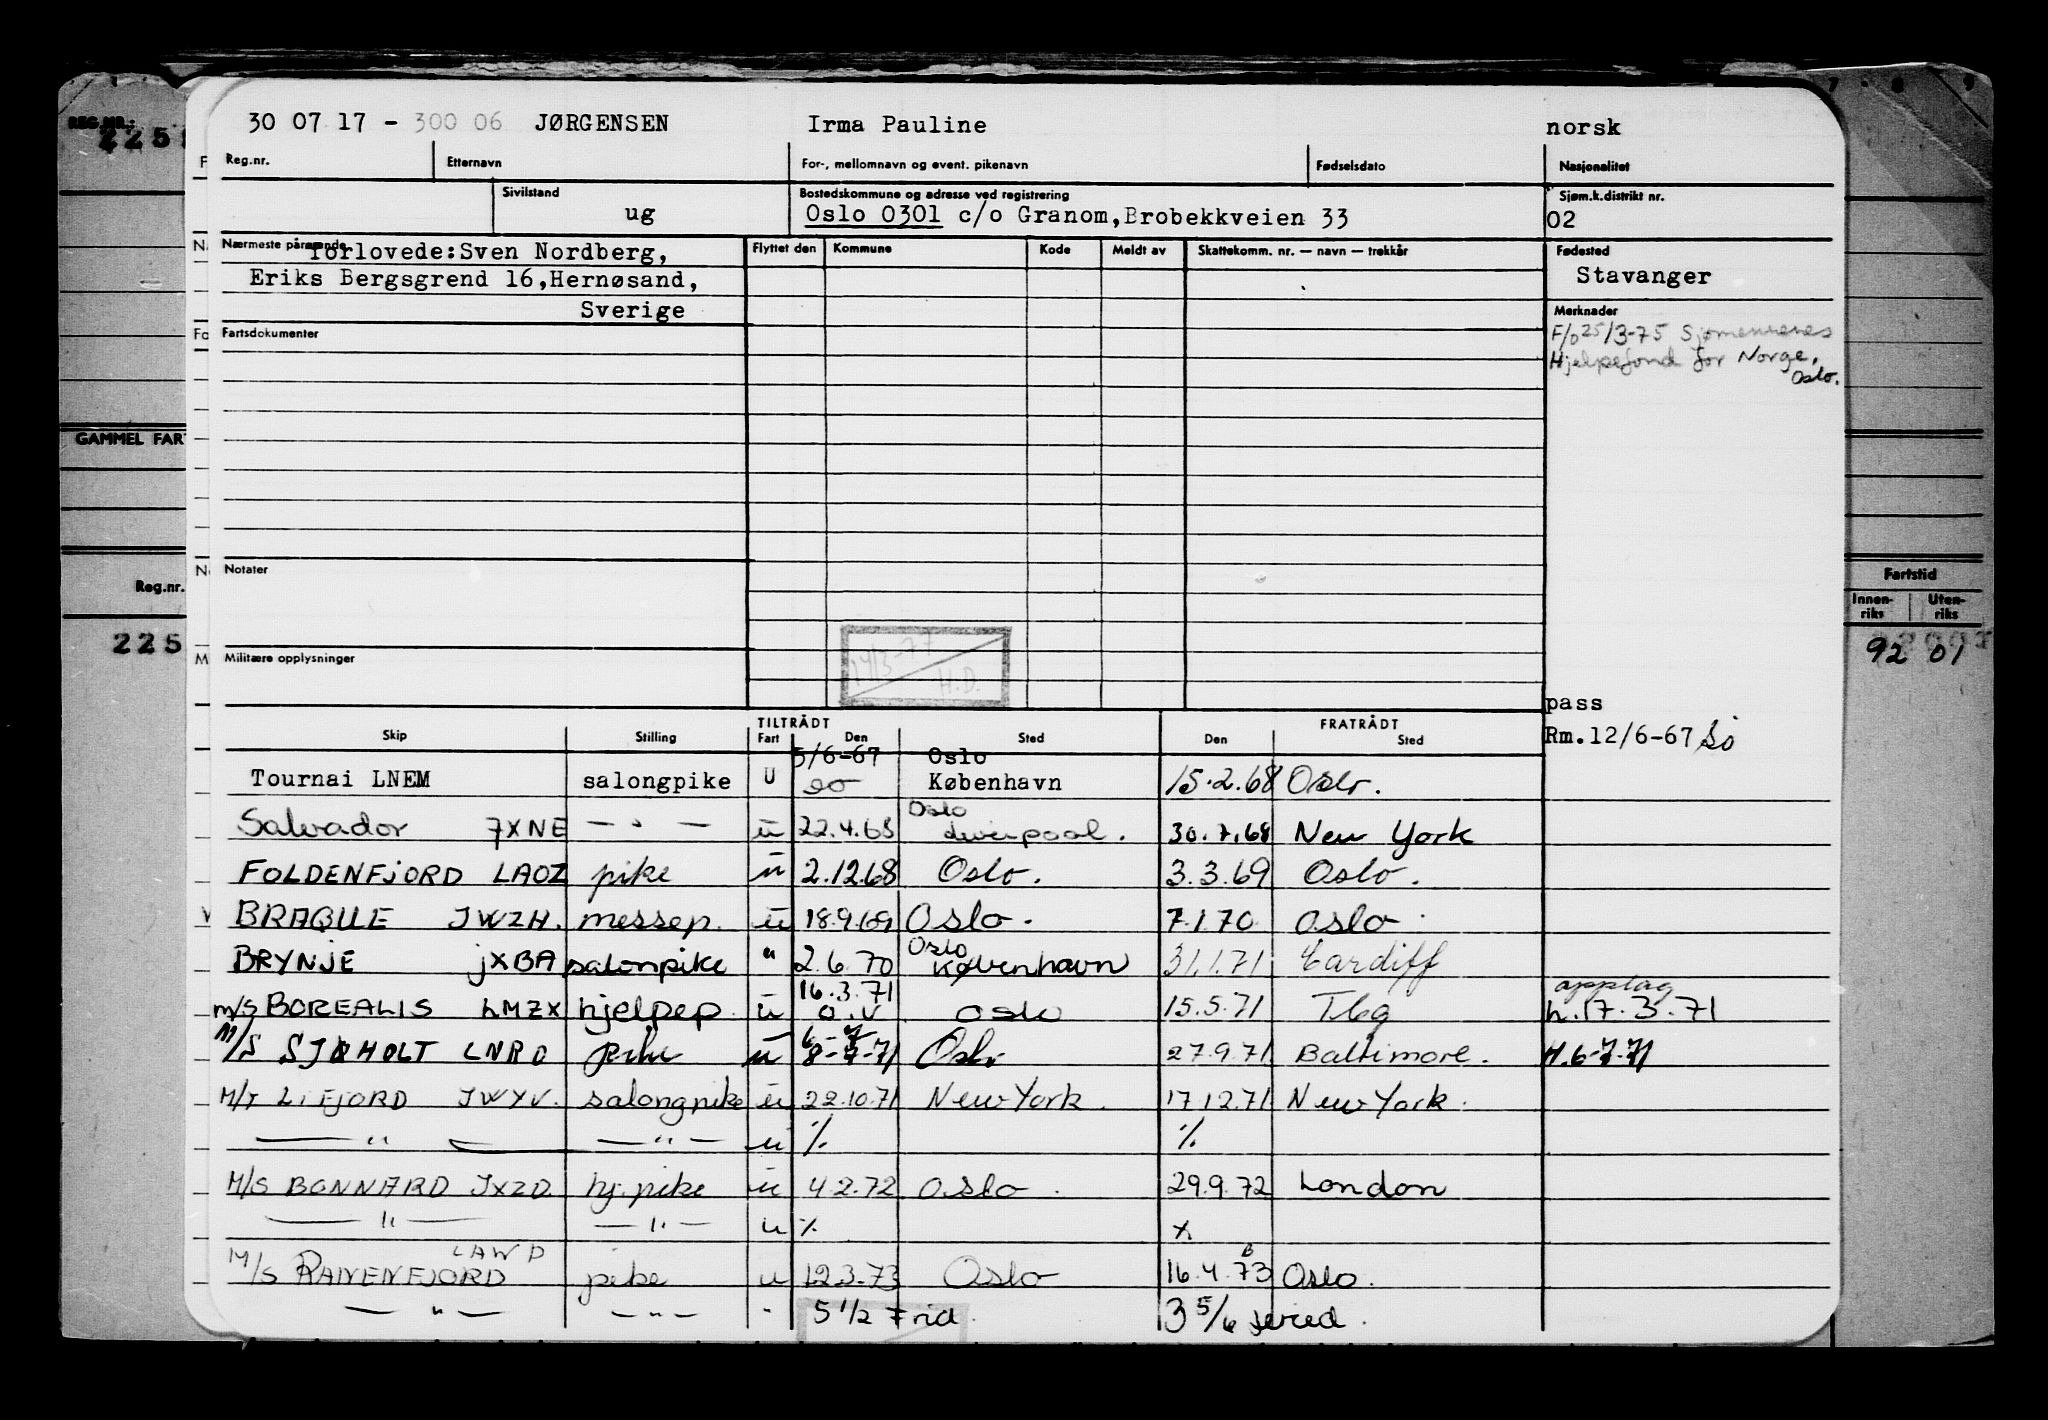 REG.NR.:
225
GAMMEL FAR
Reg.nr.
225
30 07 17 - 300 06 JØRGENSEN Irma Pauline norsk
Reg.nr. Etternavn For-, mellomnavn og event. pikenavn Fødselsdato Nasjonalitet
Sivilstand Bostedskommune og adresse ved registrering Sjøm.k.distrikt nr.
ug Oslo 0301 c/o Granom,Brobekkveien 33 02
Nærmeste pårørende Flyttet den Kommune Kode Meldt av Skattekomm. nr. — navn — trekkår Fødested
forlovede:Sven Nordberg,
Eriks Bergsgrend 16,Hernøsand, Stavanger
Sverige
Merknader
Fartsdokumenter
F/o 25/3-75 Sjømennenes
Hjelpefond for Norge,
Oslo.
Notater
Fartstid
Innen-riks Uten-riks
92 01
Militære opplysninger
19/3-77
H.D.
pass
Rm.12/6-67
TILTRÅDT FRATRÅDT
Skip Stilling Fart Den Sted Den Sted
5/6-67 Oslo
Tournai LNEM salongpike U København 15.2.68 Oslo.
Oslo
Salvador JXNE — " — u 22.4.68 Liverpool. 30.7.68 New York
FOLDENFJORD LAOZ pike u 2.12.68 Oslo. 3.3.69 Oslo.
BRAQUE JWZH. messep. u 18.9.69 Oslo. 7.1.70 Oslo
Oslo
BRYNJE JXBA salonpike " 2.6.70 København 31.1.71 Cardiff
16.3.71 opptag
m/s BOREALIS LMZX hjelpep. u o.v. Oslo 15.5.71 Tbg h.17.3.71
M/S SJØHOLT LNRD pike u 8-7-71 Oslo 27.9.71 Baltimore. H.6-7-71
M/T LIFJORD JWYV. salongpike u 22.10.71 New York. 17.12.71 New York.
— " — — " — u % %
M/S BONNARD JXZD. hj.pike u 4.2.72 Oslo. 29.9.72 London
— " — — " — u % x
LAWP
M/S RANENFJORD pike u 12.3.73 Oslo 16.4.73 Oslo.
— " — — " — " 5 1/2 Frid. 3 5/6